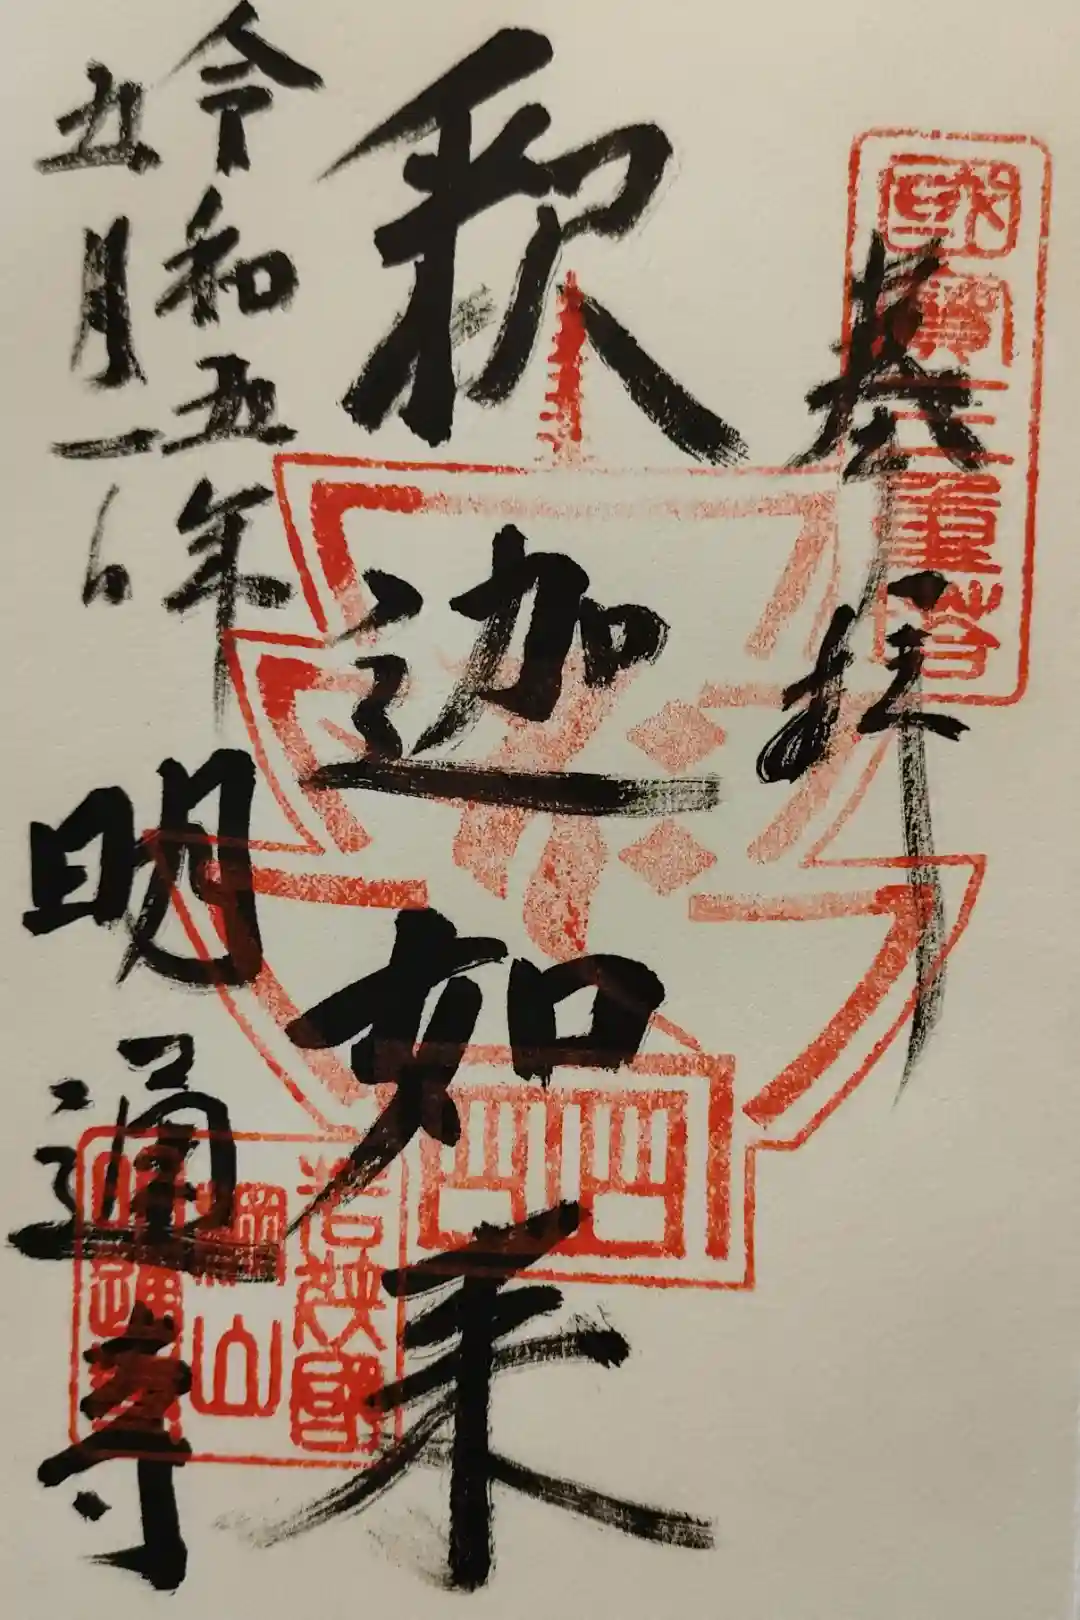 奉拝
國寶三重塔
釈迦如来
令和五年
五月一日
明通寺
若狭國
棡山
明通寺